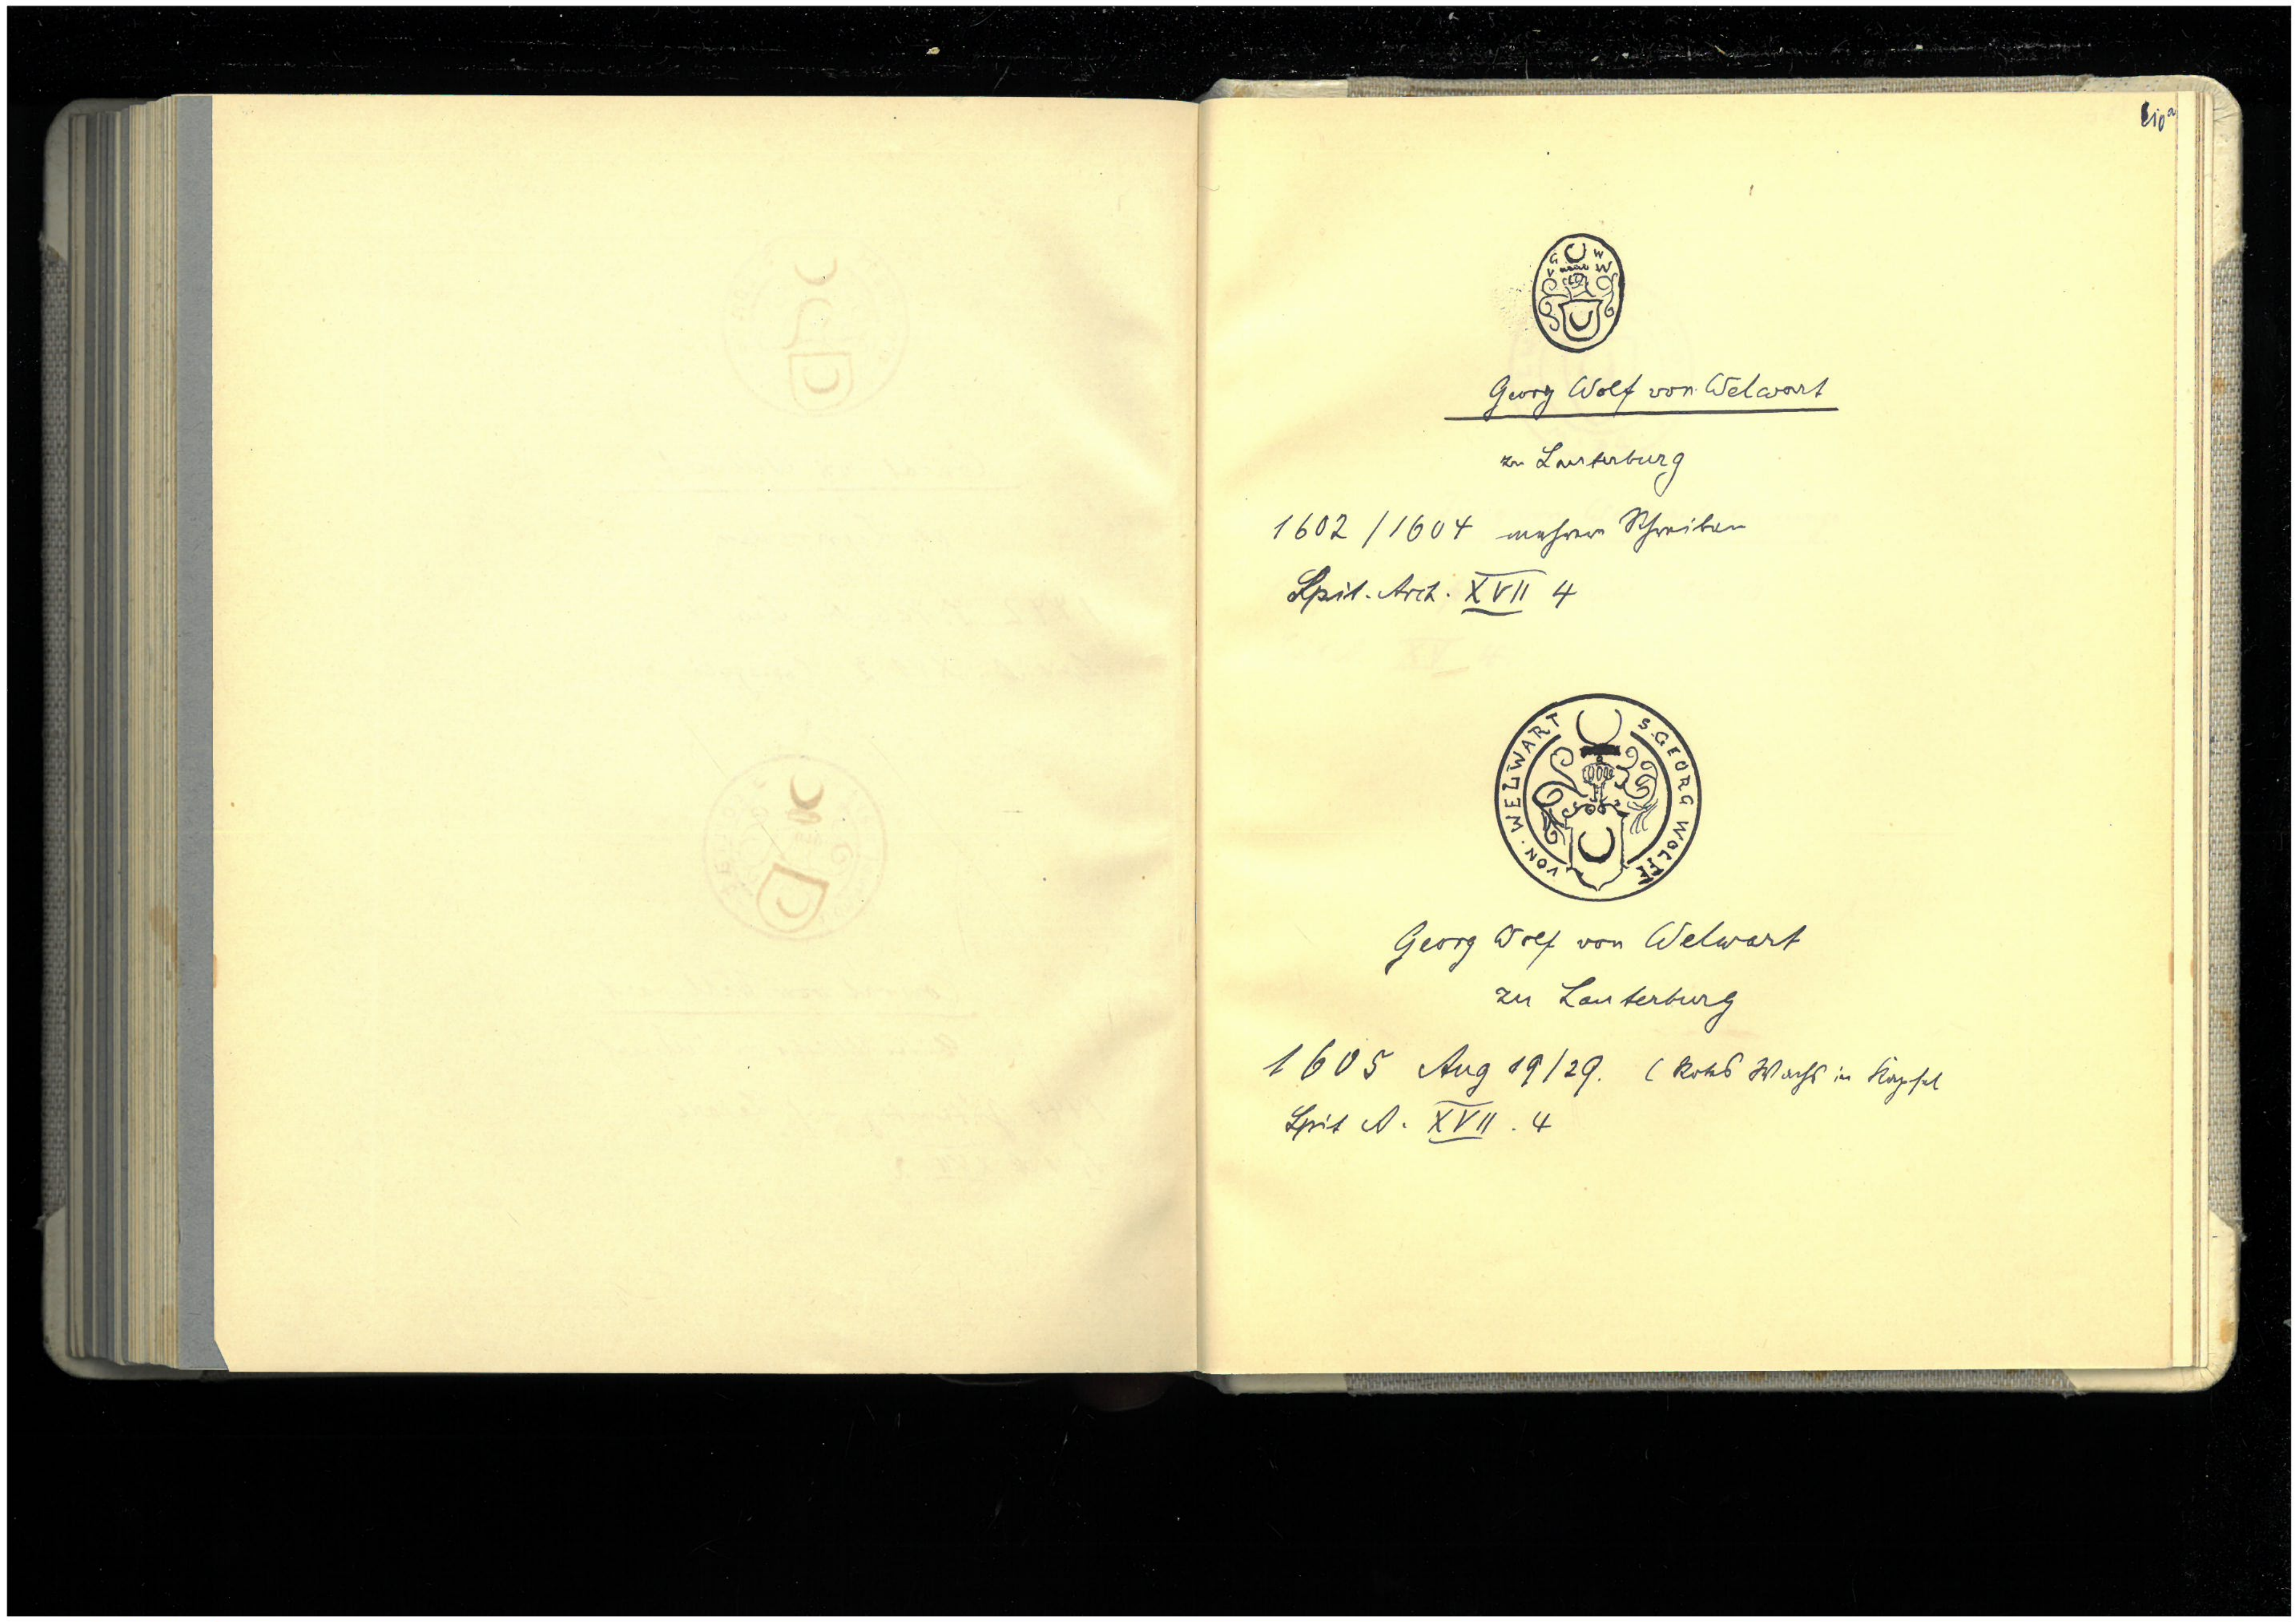 G W
V W
Georg Wolf von Welwart
zu Lauterburg
1602 / 1604 mehrere Schreiben
Spit. Arch. XVII 4
S. GEORG WOLFF
VON · WELLWART
Georg Wolf von Welwart
zu Lauterburg
1605 Aug 19/29. ( Rotes Wachs in Kapsel
Spit A. XVII . 4